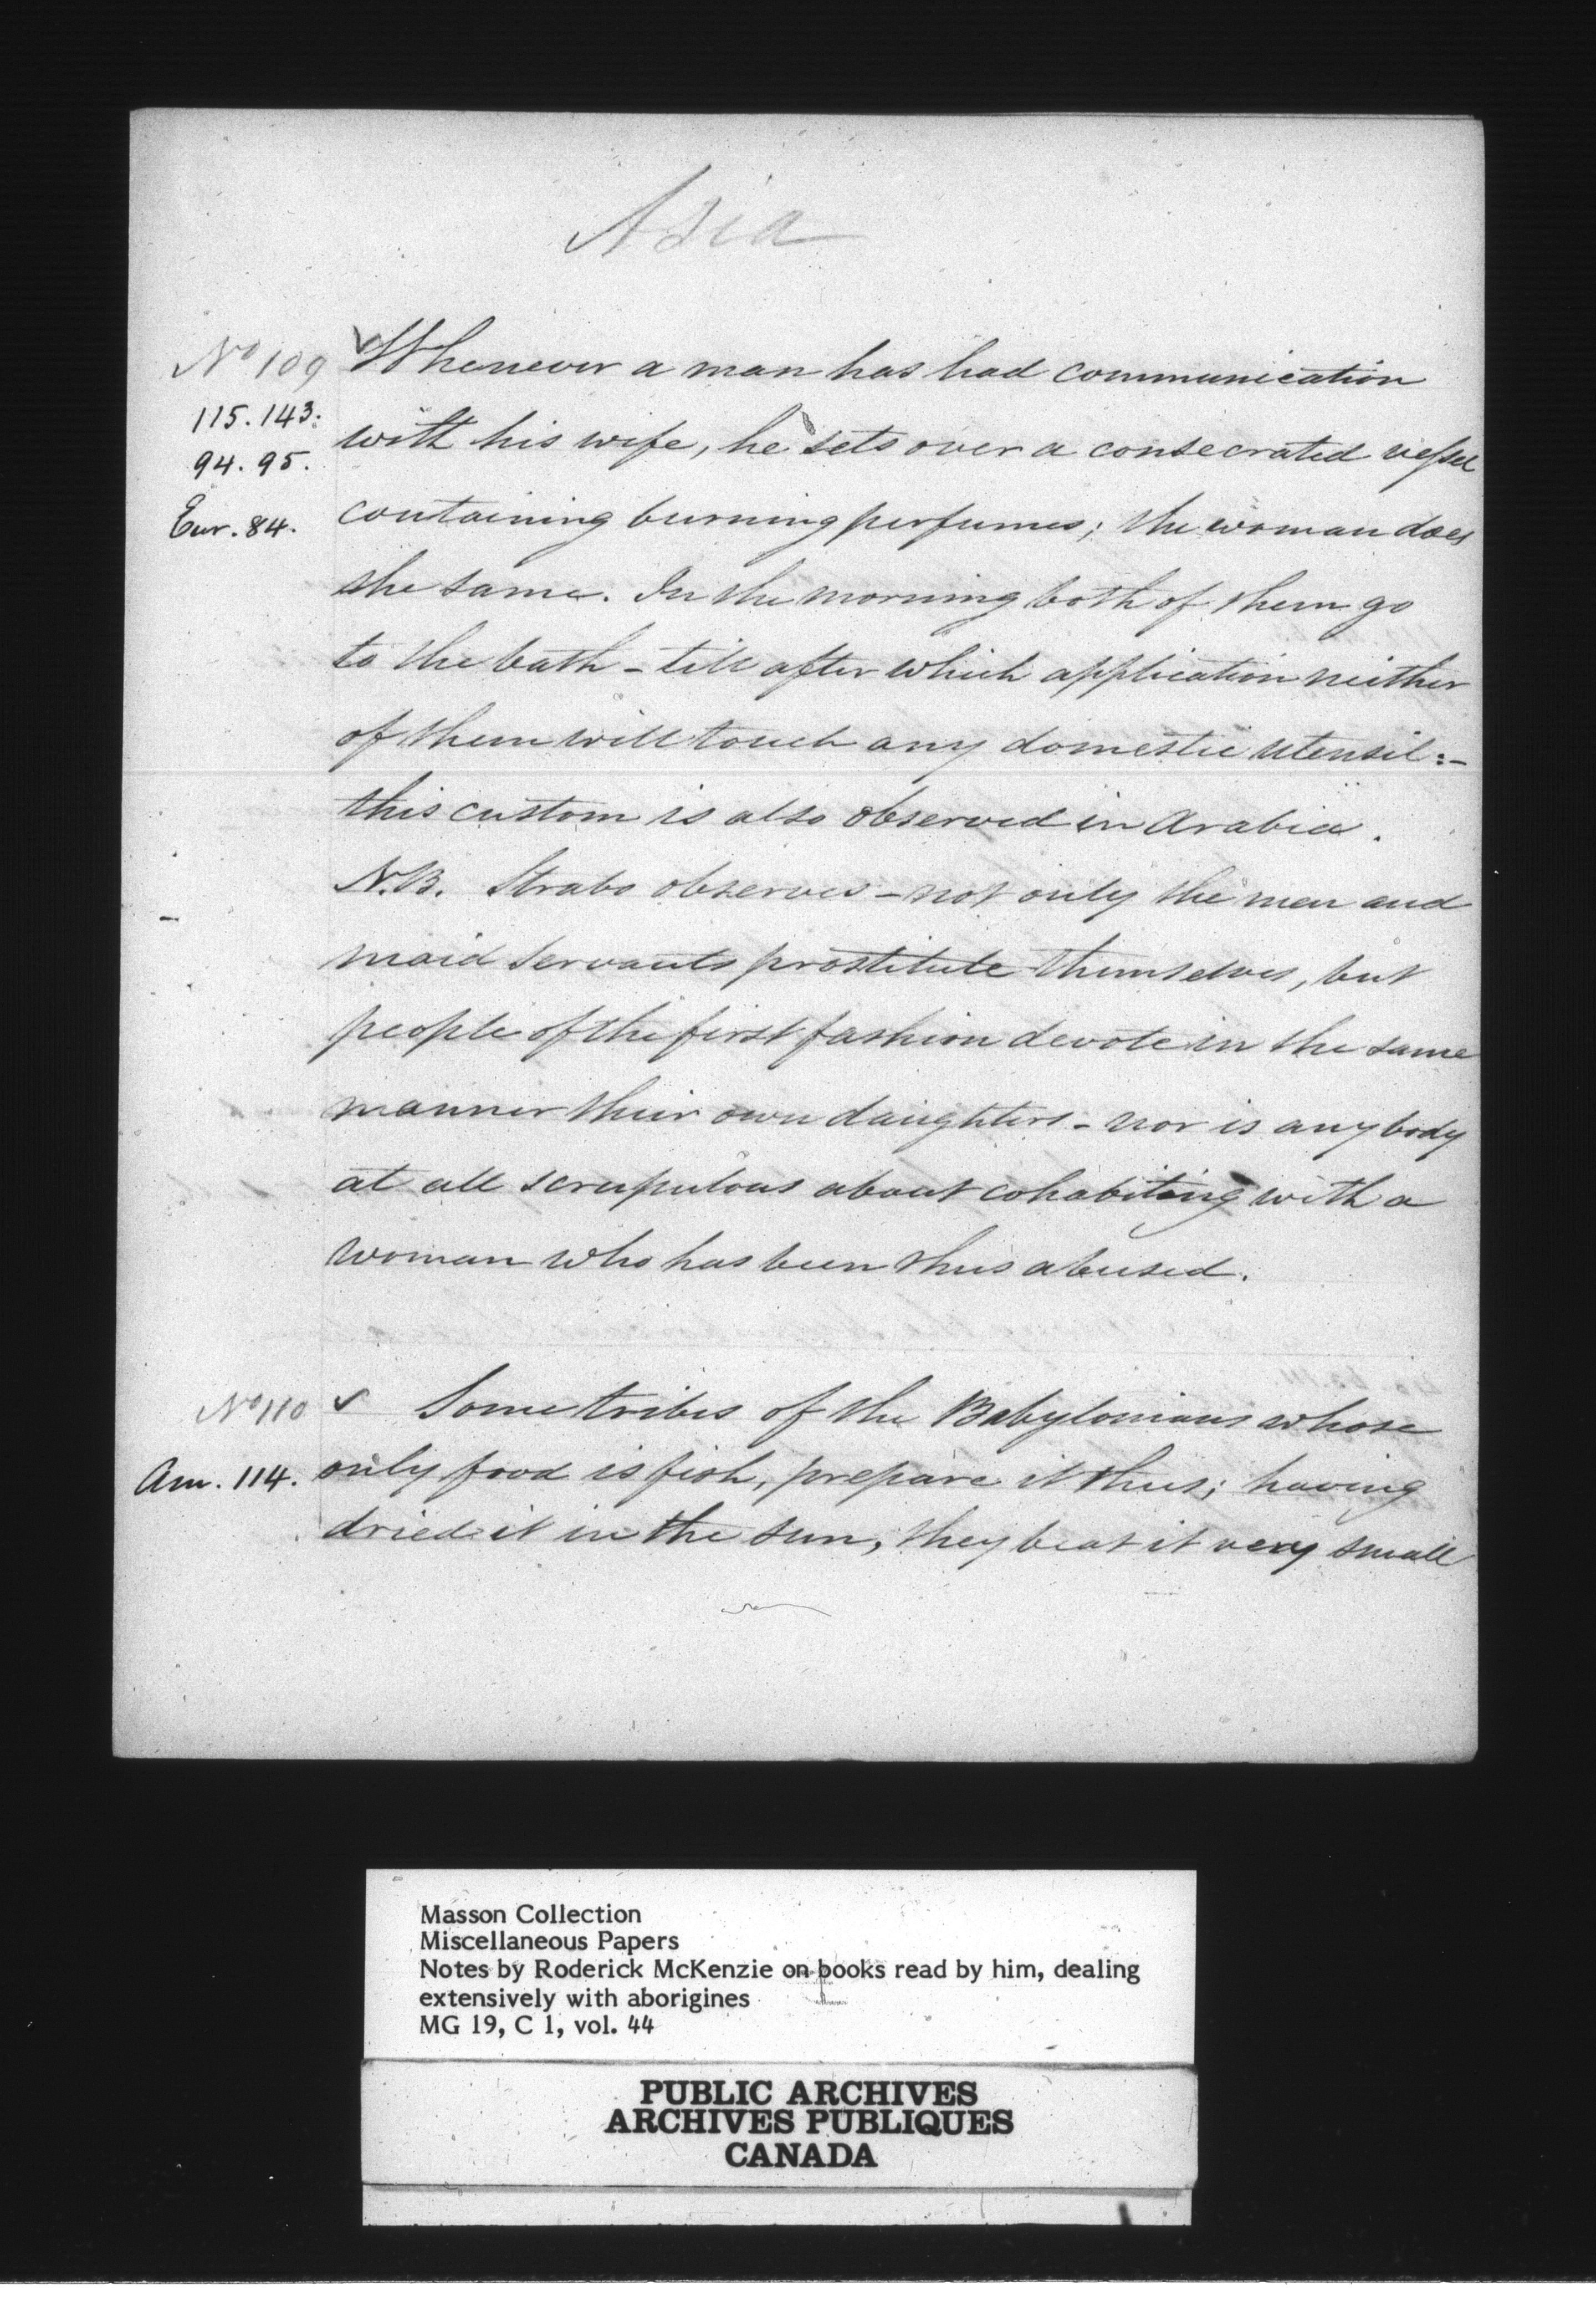 Asia
No 109 Whenever a man has had communication
115. 143: with his wife, he sets over a consecrated vessel
94. 95.
Eur. 84. containing burning perfumes; the woman does
the same. In the morning both of them go
to the bath - till after which application neither
of them will touch any domestic utensil:-
this custom is also observed in Arabia.
N.B. Strabo observes - not only the men and
maid servants prostitute themselves, but
people of the first fashion devote in the same
manner their own daughters - nor is any body
at all scrupulous about cohabiting with a
woman who has been thus abused.
No 110 Some tribes of the Babylonians whose
Am. 114. only food is fish, prepare it thus; having
dried it in the sun, they beat it very small
Masson Collection
Miscellaneous Papers
Notes by Roderick McKenzie on books read by him, dealing
extensively with aborigines
MG 19, C 1, vol. 44
PUBLIC ARCHIVES
ARCHIVES PUBLIQUES
CANADA